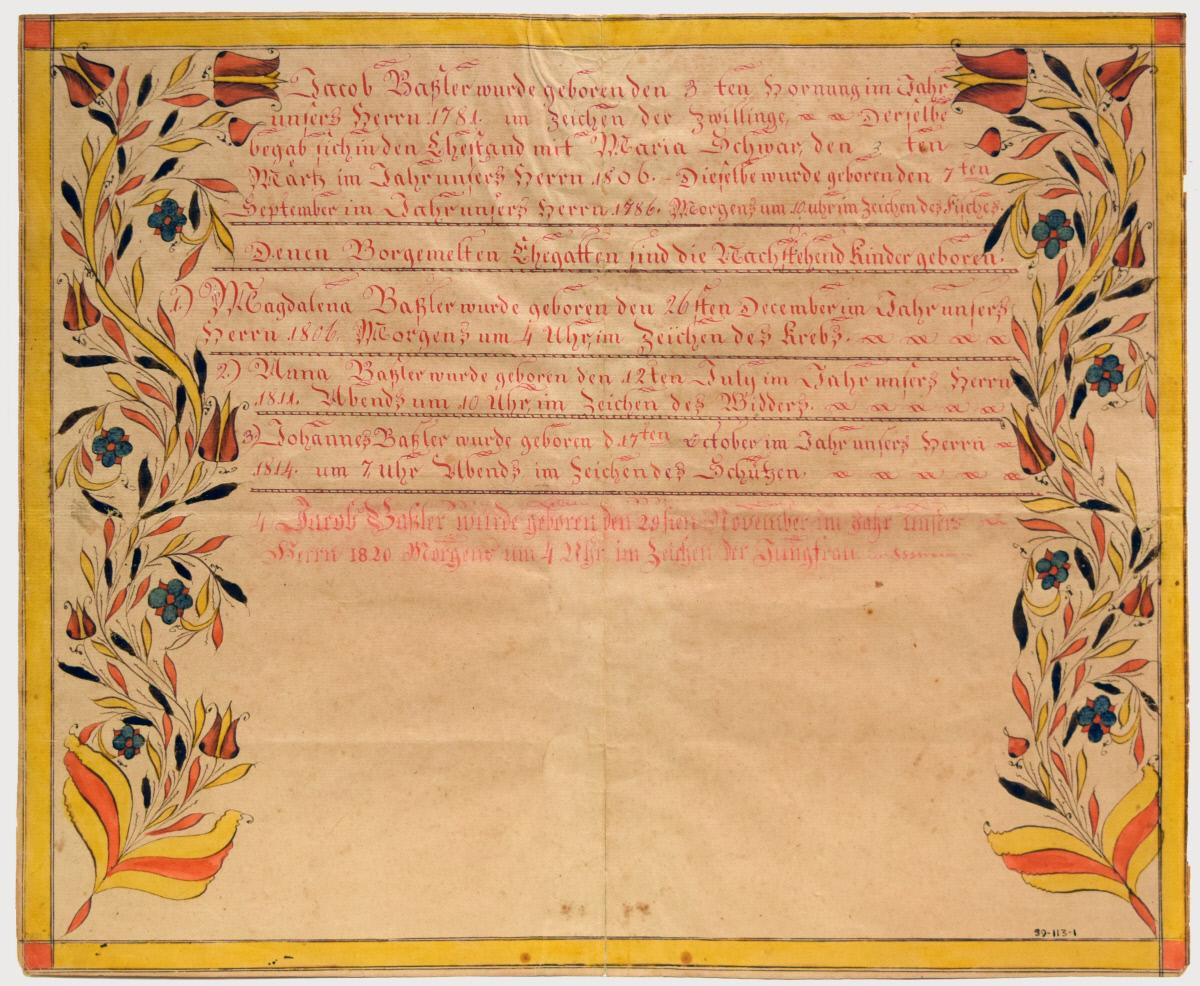 Jacob Baßler wurde geboren den 3 ten Hornung im Jahr
unsers Herrn 1781. im Zeichen der Zwillinge, Derselbe
begab sich in den Ehestand mit Maria Schwar, den 3 ten
Märtz im Jahr unsers Herrn 1806. Dieselbe wurde geboren den 7ten
September im Jahr unsers Herrn 1786, Morgens um 10 uhr im Zeichen des
Denen Vorgemelten Ehegatten sind die Nachstehend Kinder geboren.
1) Magdalena Baßler wurde geboren den 26sten December im Jahr unsers
Herrn 1806. Morgens um 4 Uhr, im Zeichen des Krebs.
2.) Anna Baßler wurde geboren den 12ten July im Jahr unsers Herrn
1811. Abends um 10 Uhr, im Zeichen des Widders.
3) Johannes Baßler wurde geboren d. 17ten October im Jahr unsers Herrn
1814. um 7 Uhr Abends im Zeichen des Schützen.
4 Jacob Baßler wurde geboren den 29sten November im Jahr unsers
Herrn 1820 Morgens um 4 Uhr im Zeichen der Jungfrau
39-113-1